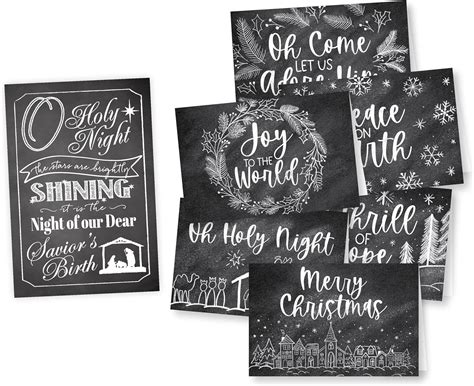 O Holy
Night
the stars are brightly
SHINING
it is the
Night of our Dear
Savior's
Birth
Oh Come
LET US
Adore Him
Joy
TO THE
World
Peace
ON
rth
Oh Holy Night
hrill
OF
ope
Merry
Christmas